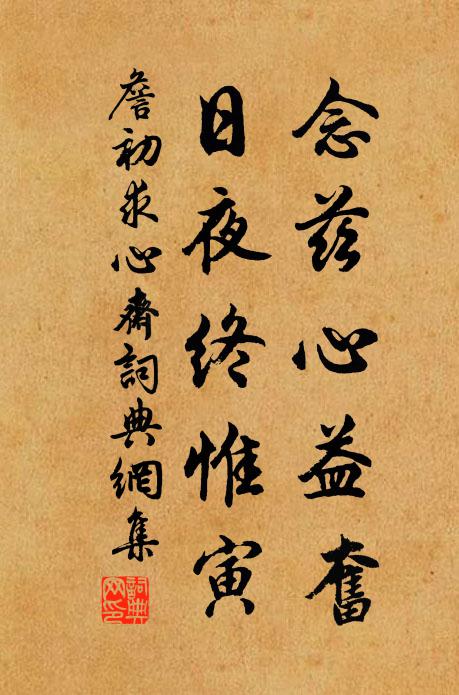 念茲心益奮
日夜終惟寅
詹初求心齋詞典網集
詞典
网印